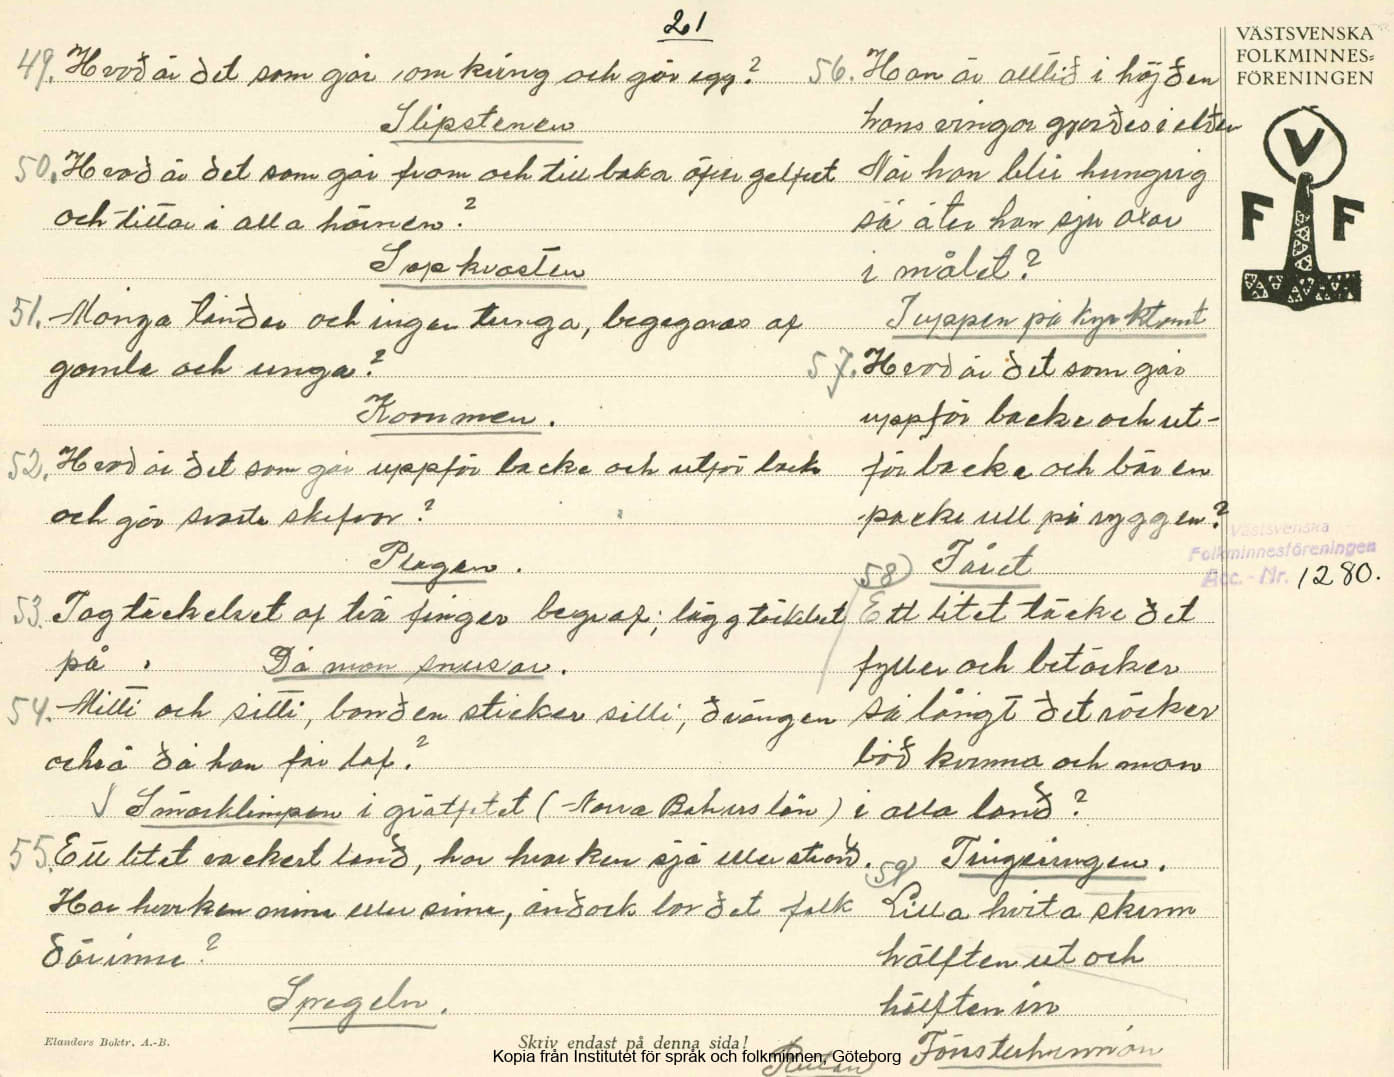 21
49. Hvad är det som går omkring och gör egg?
Slipstenen
50. Hvad är det som går fram och tillbaka öfver golfvet
och tittar i alla hörnen?
Sopkvasten
51. Många tänder och ingen tunga, begagnas af
gamla och unga?
Kammen.
52. Hvad är det som går uppför backe och utför back
och gör svarta skifvor?
Plogen.
53. Tag täckelset af två finger begraf; lägg täckelset
på.
Då man snusar.
54. Mitti och sitti, bonden sticker silli, drängen
också då han får lof?
Smörklimpen i grötfatet (Norra Bohuslän)
55. Ett litet vackert land, har hvarken sjö eller strand.
Har hvarken eller, ändock bor det folk
därinne?
Spegeln.
56. Han är alltid i höjden
hans vingar gjordes i elden
När han blir hungrig
så äter han sju oxar
i målet?
Tuppen på kyrktornet
57. Hvad är det som går
uppför backe och ut-
för backe och bär en
packe ull på ryggen?
Fåret
58) Ett litet täcke det
fyller och betäcker
så långt det räcker
båd kvinna och man
i alla land?
Fingerringen.
59) Lilla hvita skinn
hälften ut och
hälften in
Fönsterhinnan
Rutan
VÄSTSVENSKA
FOLKMINNES=
FÖRENINGEN
V
F F
Västsvenska
Folkminnesföreningen
Acc.-Nr. 1280.
Elanders Boktr. A.-B.
Skriv endast på denna sida!
Kopia från Institutet för språk och folkminnen, Göteborg